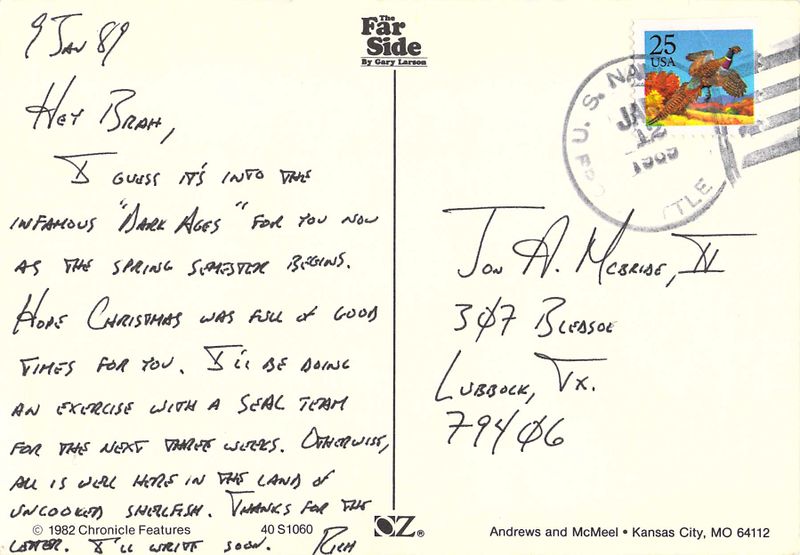 9 Jan 89
The
Far
Side
By Gary Larson
25
USA
U.S. NA
JAN
12
1989
TLE
Hey Brah,
I guess it's into the
infamous "Dark Ages" for you now
as the spring semester begins.
Hope Christmas was full of good
times for you. I'll be doing
an exercise with a SEAL team
for the next three weeks. Otherwise,
all is well here in the land of
uncooked shellfish. Thanks for the
letter. I'll write soon. Rich
Jon A. McBride, II
307 Bledsoe
Lubbock, Tx.
79406
© 1982 Chronicle Features
40 S1060
OZ®
Andrews and McMeel • Kansas City, MO 64112